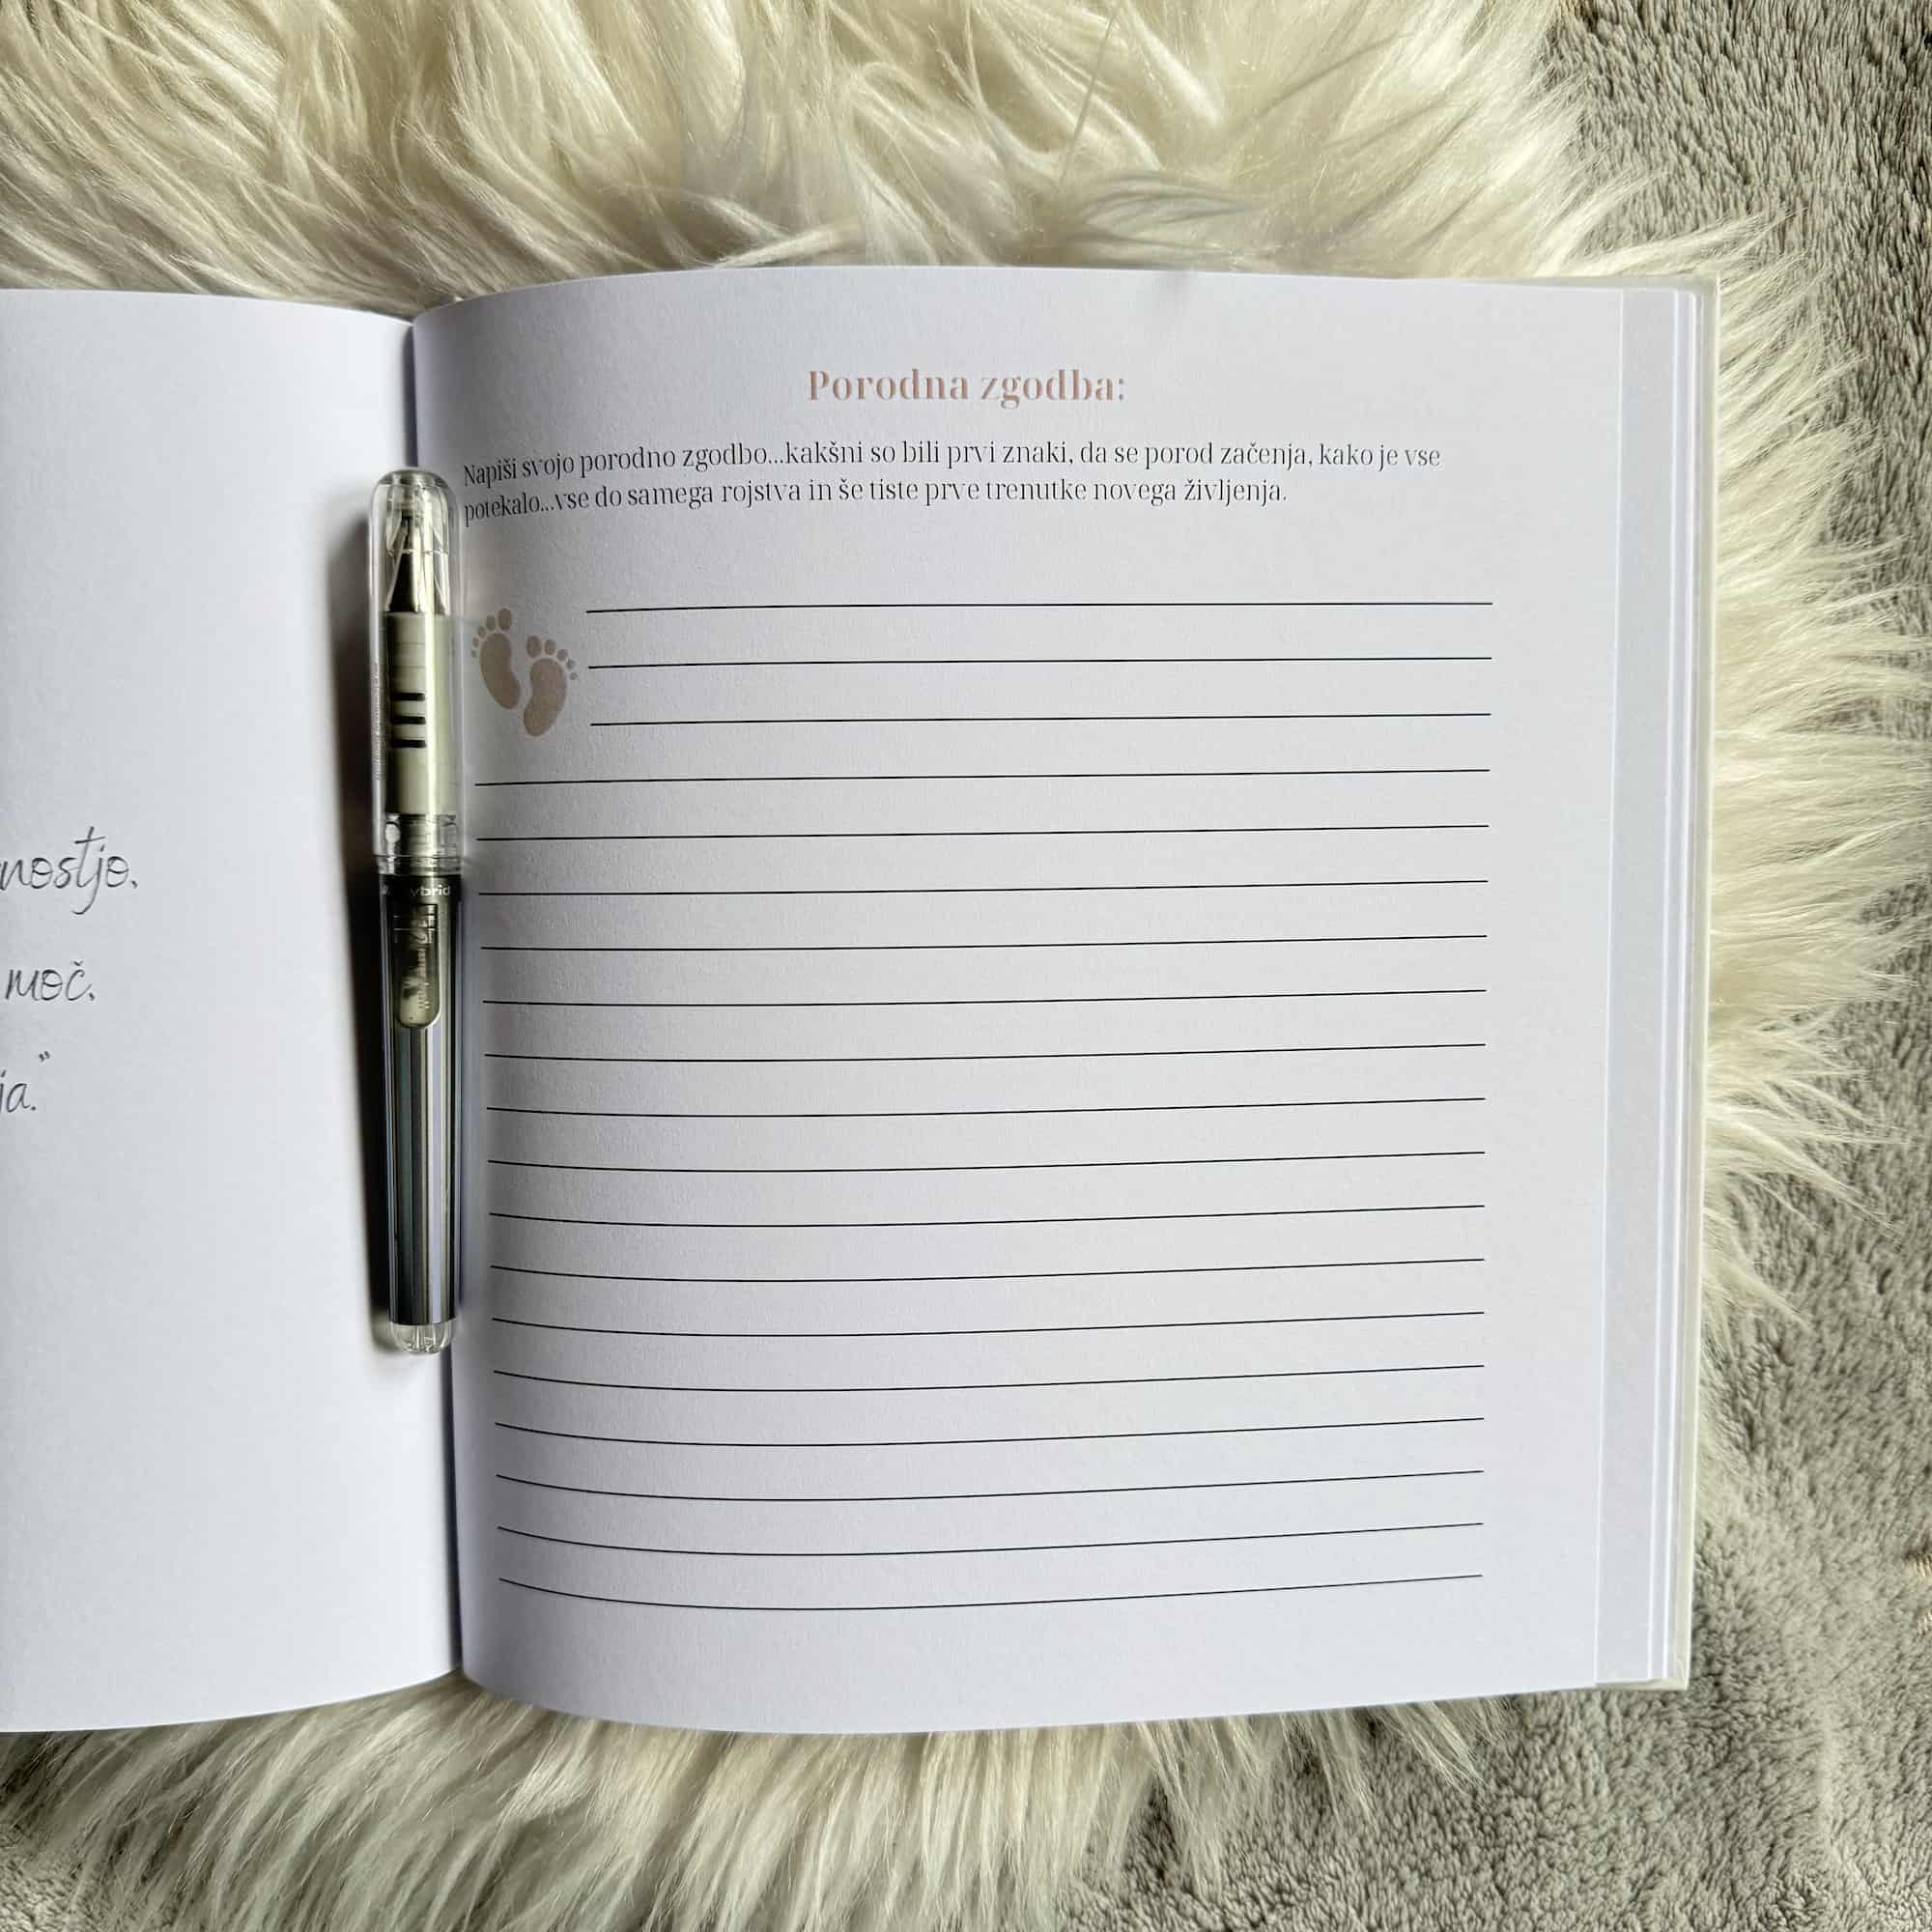 nostjo.
moč.
ja."
Porodna zgodba:
Napiši svojo porodno zgodbo...kakšni so bili prvi znaki, da se porod začenja, kako je vse
potekalo...vse do samega rojstva in še tiste prve trenutke novega življenja.